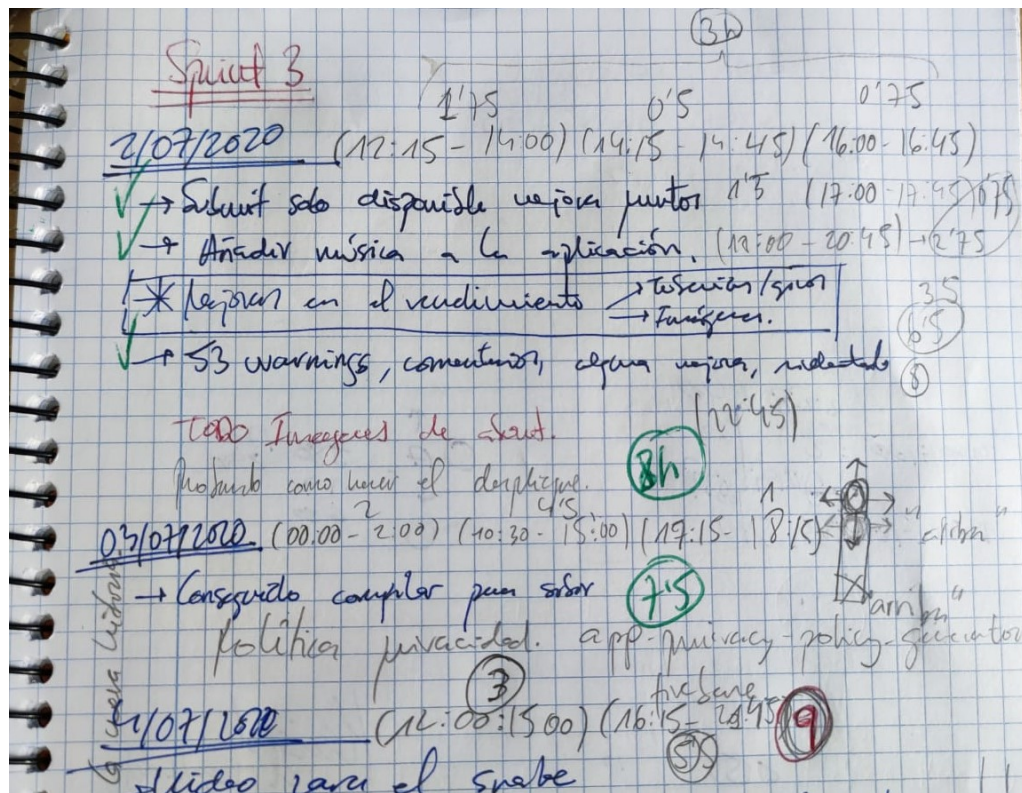 3h
Sprint 3
1'75 0'5 0'75
2/07/2020 (12:15 - 14:00) (14:15 - 14:45) (16:00 - 16:45)
→ Submit solo disponible mejora puntos 1'5 (17:00 - 17:45) 0'75
→ Añadir música a la aplicación. (18:00 - 20:45) → 2'75
* Mejoras en el rendimiento → /giros
→ Imágenes.
3'5
6'5
→ 53 warnings, comentarios, alguna mejora, indentado
8
(22:45)
TODO Imágenes de
Probando como hacer el despliegue. 8h
2 4'5 1
03/07/2020 (00:00 - 2:00) (10:30 - 15:00) (17:15 - 18:15)
→ Conseguido compilar para subir 7'5
"arriba"
Política privacidad. app-privacy-policy-generator
3 firebase
4/07/2020 (12:00:15 00) (16:15 - 45) 9
5'5
Video para el